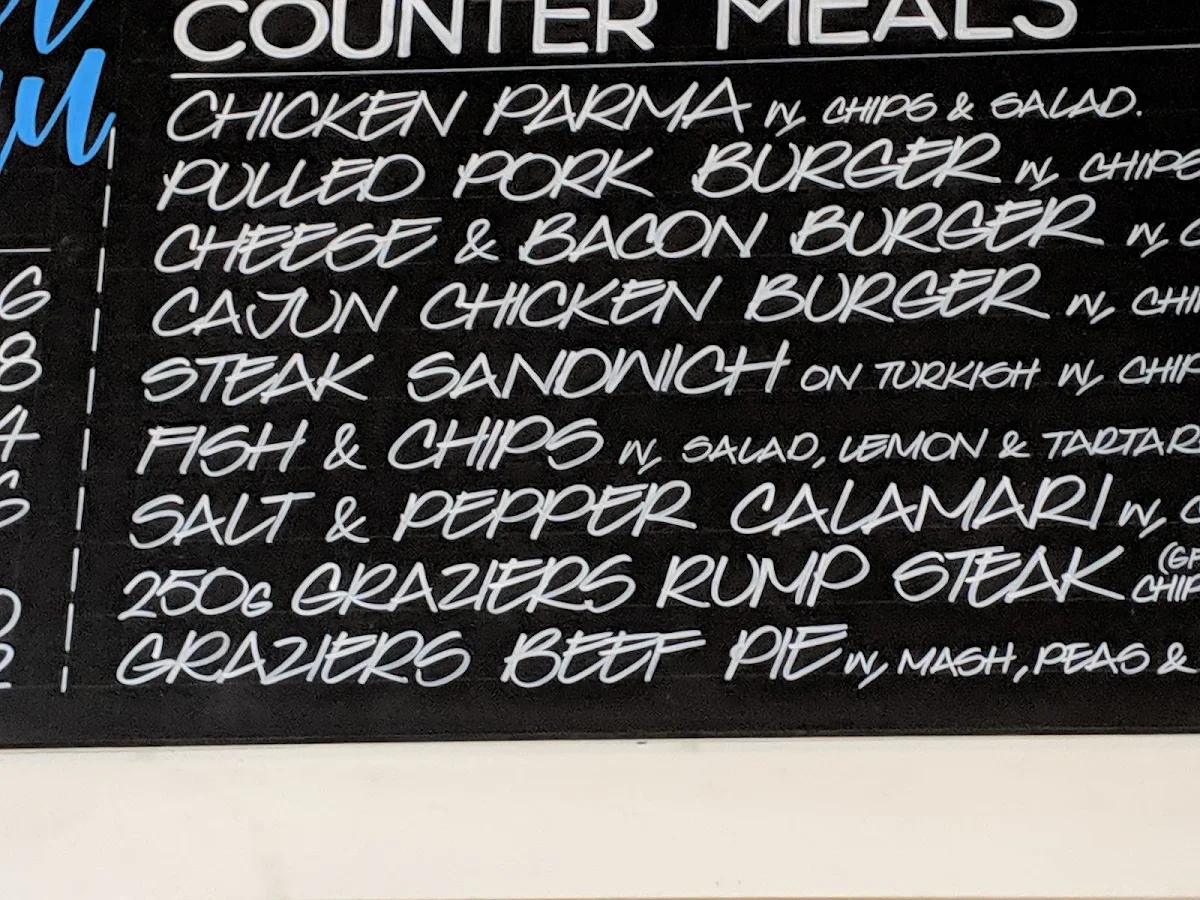 COUNTER MEALS
CHICKEN PARMA W/ CHIPS & SALAD.
PULLED PORK BURGER W/ CHIPS
CHEESE & BACON BURGER W/
CAJUN CHICKEN BURGER W/
STEAK SANDWICH ON TURKISH W/
FISH & CHIPS W/ SALAD, LEMON & TARTAR
SALT & PEPPER CALAMARI W/
250G GRAZIERS RUMP STEAK
GRAZIERS BEEF PIE W/ MASH, PEAS &
6
8
4